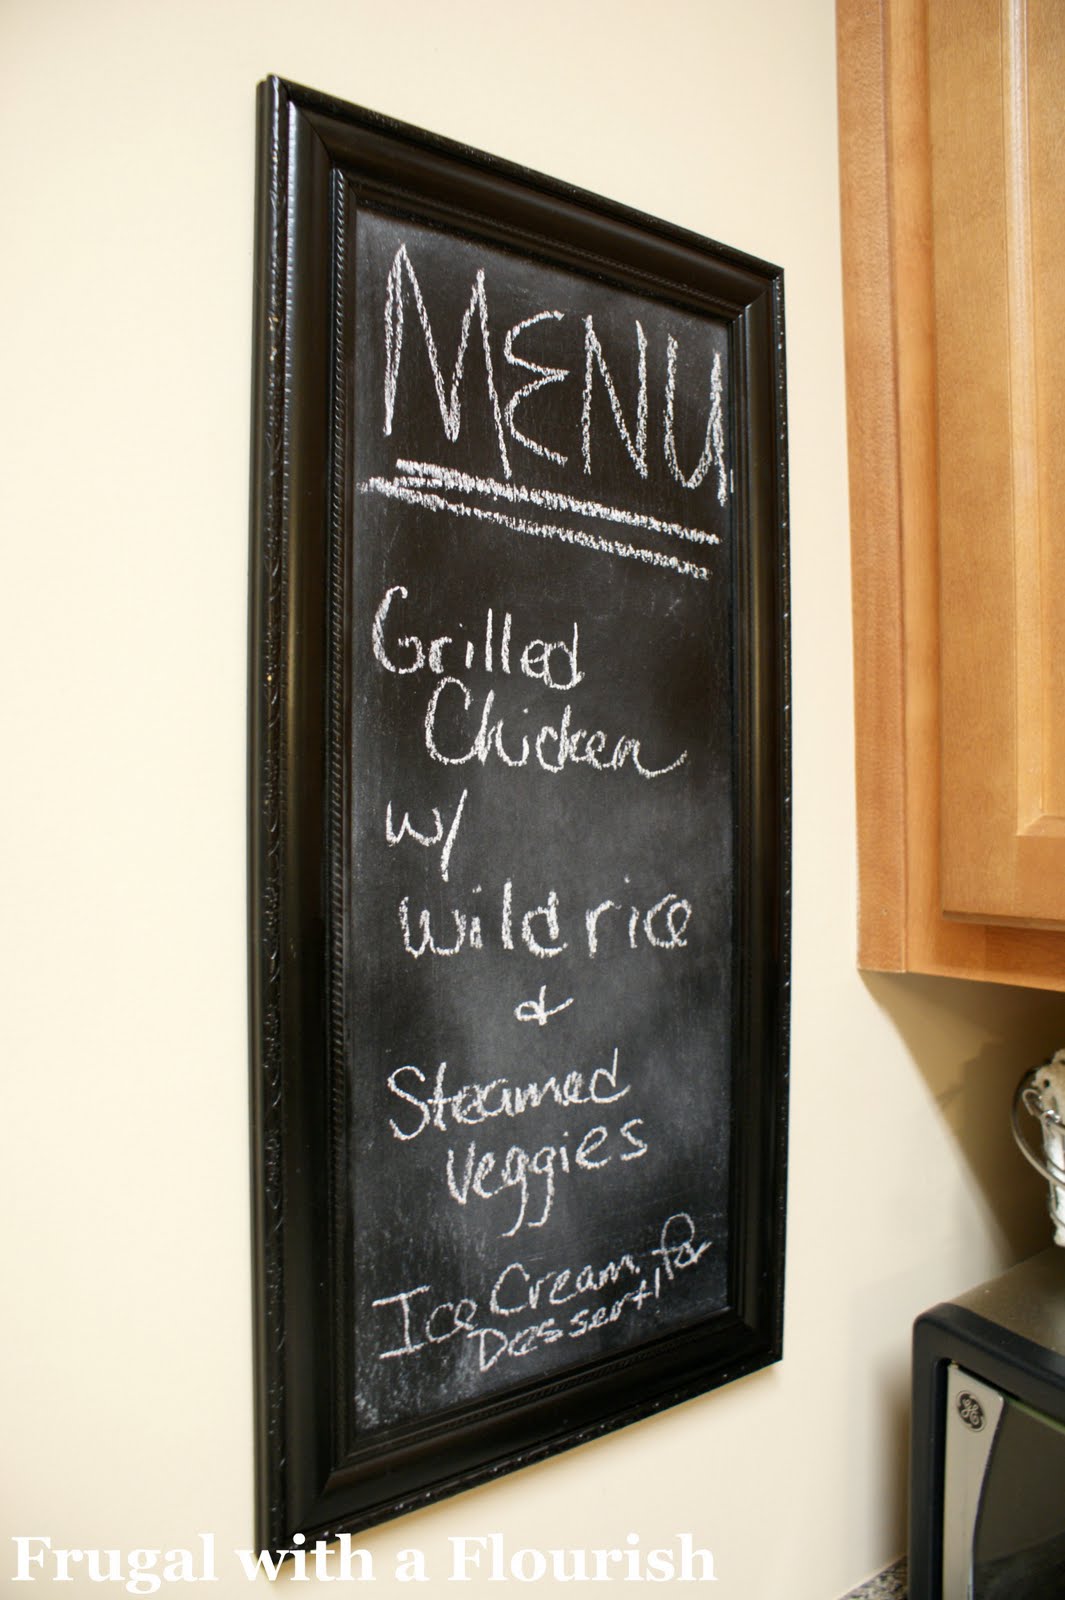 MENU
Grilled
Chicken
w/
Wild rice
&
Steamed
Veggies
Ice Cream for
Dessert!
GE
Frugal with a Flourish